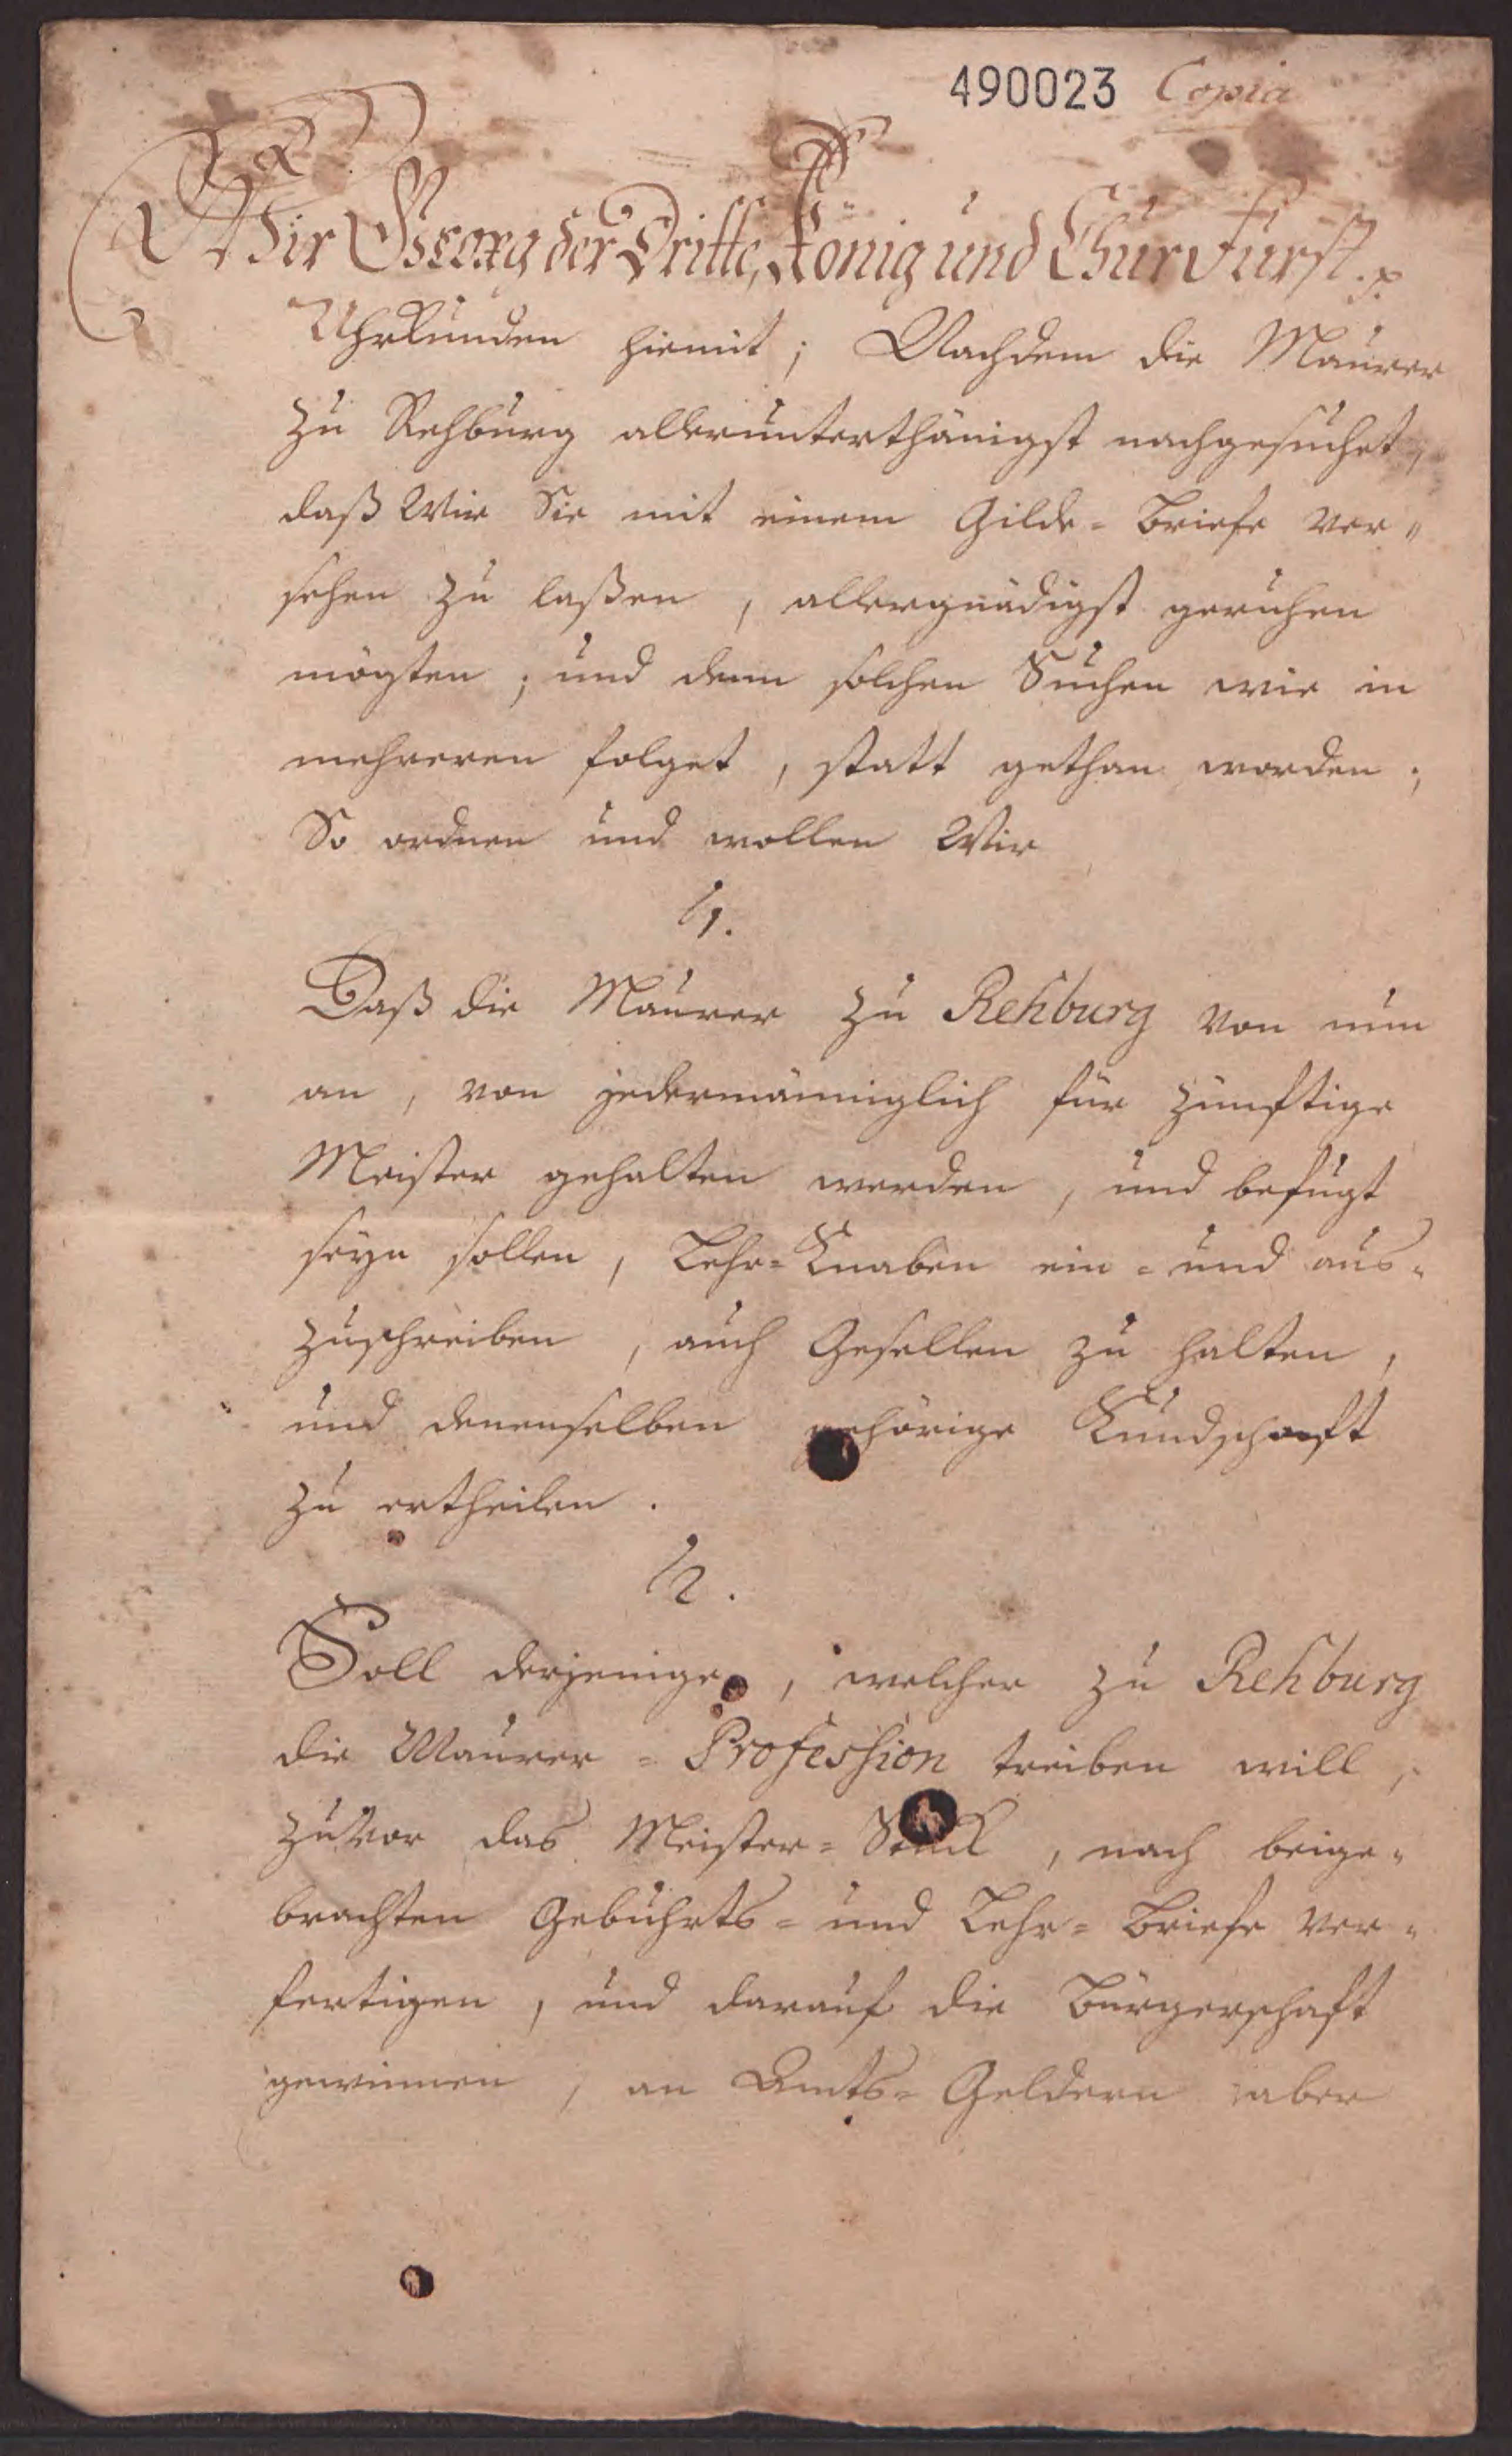 490023 Copia
Wir Georg der Dritte, König und Churfürst. p.
Uhrkunden hiemit; Nachdem die Maurer
zu Rehburg allerunterthänigst nachgesuchet,
daß Wir Sie mit einem Gilde-Briefe ver-
sehen zu laßen, allergnädigst geruhen
mögten; und denn solchen Suchen wie in
mehreren folget, statt gethan worden;
So ordnen und wollen Wir
1.
Daß die Maurer zu Rehburg von nun
an, von jedermänniglich für zünftige
Meister gehalten werden, und befugt
seyn sollen, Lehr-Knaben ein- und aus-
zuschreiben, auch Gesellen zu halten,
und denenselben gehörige Kundschaft
zu ertheilen.
2.
Soll derjenige, welcher zu Rehburg
die Maurer-Profession treiben will,
zuvor das Meister-Stück, nach beige-
brachten Gebuhrts- und Lehr-Briefe ver-
fertigen, und darauf die Bürgerschaft
gewinnen, an Amts-Geldern aber